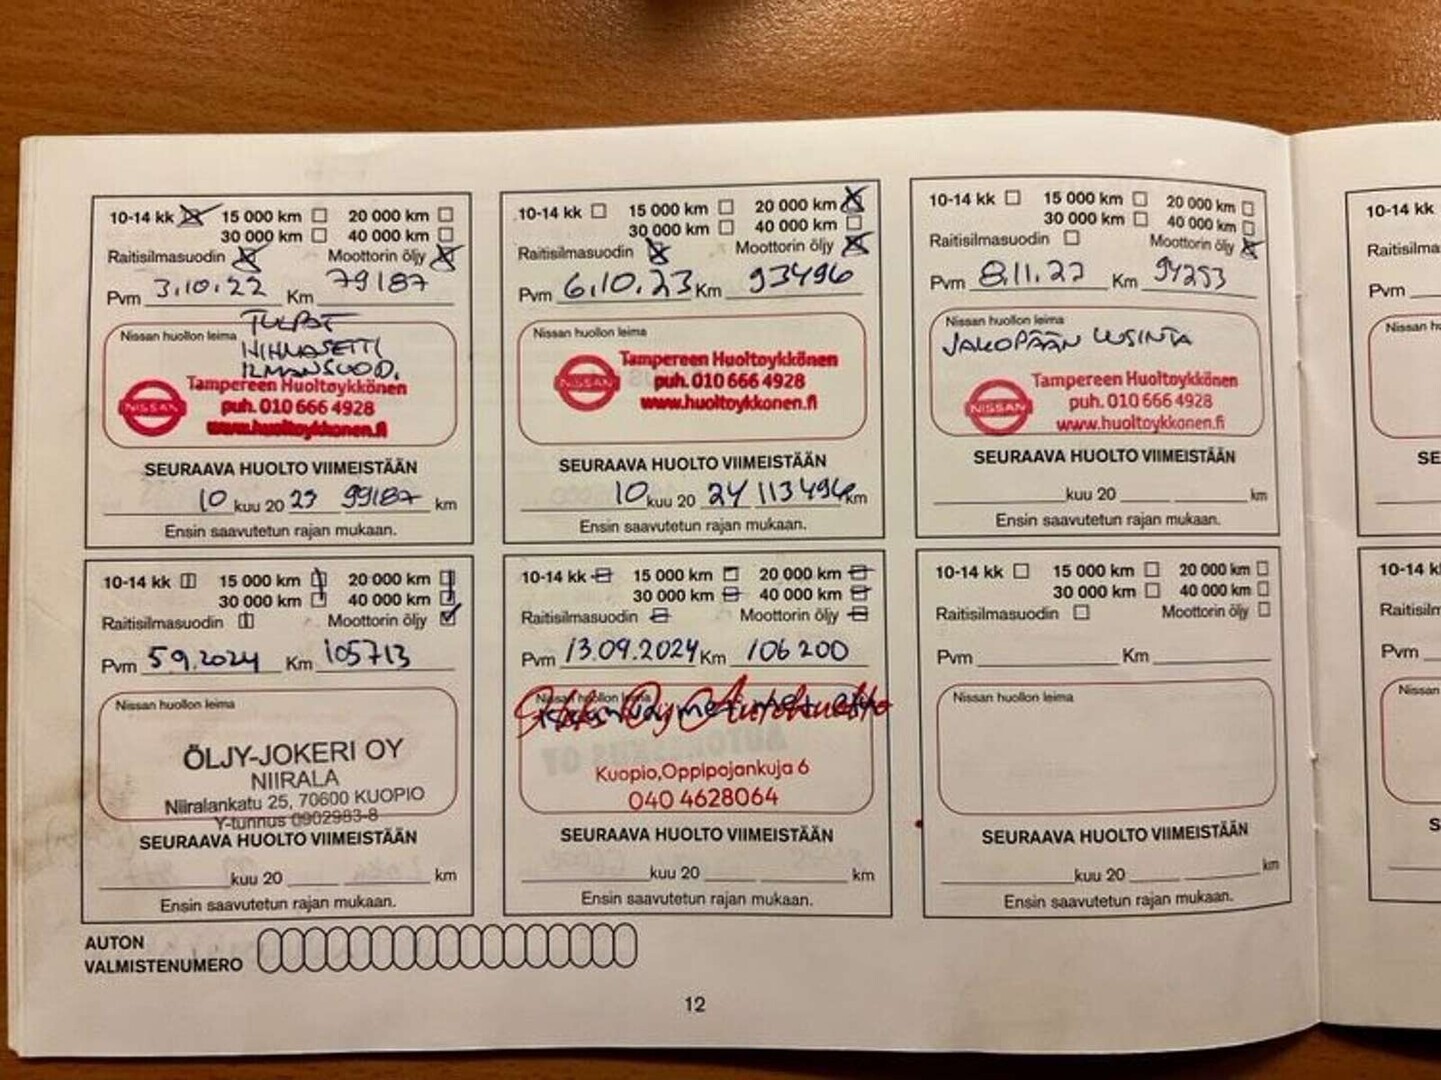 10-14 kk 15 000 km 20 000 km
30 000 km 40 000 km
Raitisilmasuodin Moottorin öljy
Pvm 3.10.22 Km 79187
TULPAT
Nissan huollon leima
HIHNASETTI
ILMANSUOD.
NISSAN
Tampereen Huoltoykkönen
puh. 010 666 4928
www.huoltoykkonen.fi
SEURAAVA HUOLTO VIIMEISTÄÄN
10 kuu 20 23 99187 km
Ensin saavutetun rajan mukaan.
10-14 kk 15 000 km 20 000 km
30 000 km 40 000 km
Raitisilmasuodin Moottorin öljy
Pvm 6.10.23 Km 93496
Nissan huollon leima
NISSAN
Tampereen Huoltoykkönen
puh. 010 666 4928
www.huoltoykkonen.fi
SEURAAVA HUOLTO VIIMEISTÄÄN
10 kuu 20 24 113496 km
Ensin saavutetun rajan mukaan.
10-14 kk 15 000 km 20 000 km
30 000 km 40 000 km
Raitisilmasuodin Moottorin öljy
Pvm 8.11.23 Km 94253
Nissan huollon leima
JAKOPÄÄN UUSINTA
NISSAN
Tampereen Huoltoykkönen
puh. 010 666 4928
www.huoltoykkonen.fi
SEURAAVA HUOLTO VIIMEISTÄÄN
kuu 20 km
Ensin saavutetun rajan mukaan.
10-14 kk
Raitisilma
Pvm
Nissan h
SE
Ensin
10-14 kk 15 000 km 20 000 km
30 000 km 40 000 km
Raitisilmasuodin Moottorin öljy
Pvm 5.9.2024 Km 105713
Nissan huollon leima
ÖLJY-JOKERI OY
NIIRALA
Niiralankatu 25, 70600 KUOPIO
Y-tunnus 0902983-8
SEURAAVA HUOLTO VIIMEISTÄÄN
kuu 20 km
Ensin saavutetun rajan mukaan.
10-14 kk 15 000 km 20 000 km
30 000 km 40 000 km
Raitisilmasuodin Moottorin öljy
Pvm 13.09.2024 Km 106200
Nissan huollon leima
Oy Autohuolto
Kuopio,Oppipojankuja 6
040 4628064
SEURAAVA HUOLTO VIIMEISTÄÄN
kuu 20 km
Ensin saavutetun rajan mukaan.
10-14 kk 15 000 km 20 000 km
30 000 km 40 000 km
Raitisilmasuodin Moottorin öljy
Pvm Km
Nissan huollon leima
SEURAAVA HUOLTO VIIMEISTÄÄN
kuu 20 km
Ensin saavutetun rajan mukaan.
10-14 k
Raitisilm
Pvm
Nissan
S
AUTON
VALMISTENUMERO
12